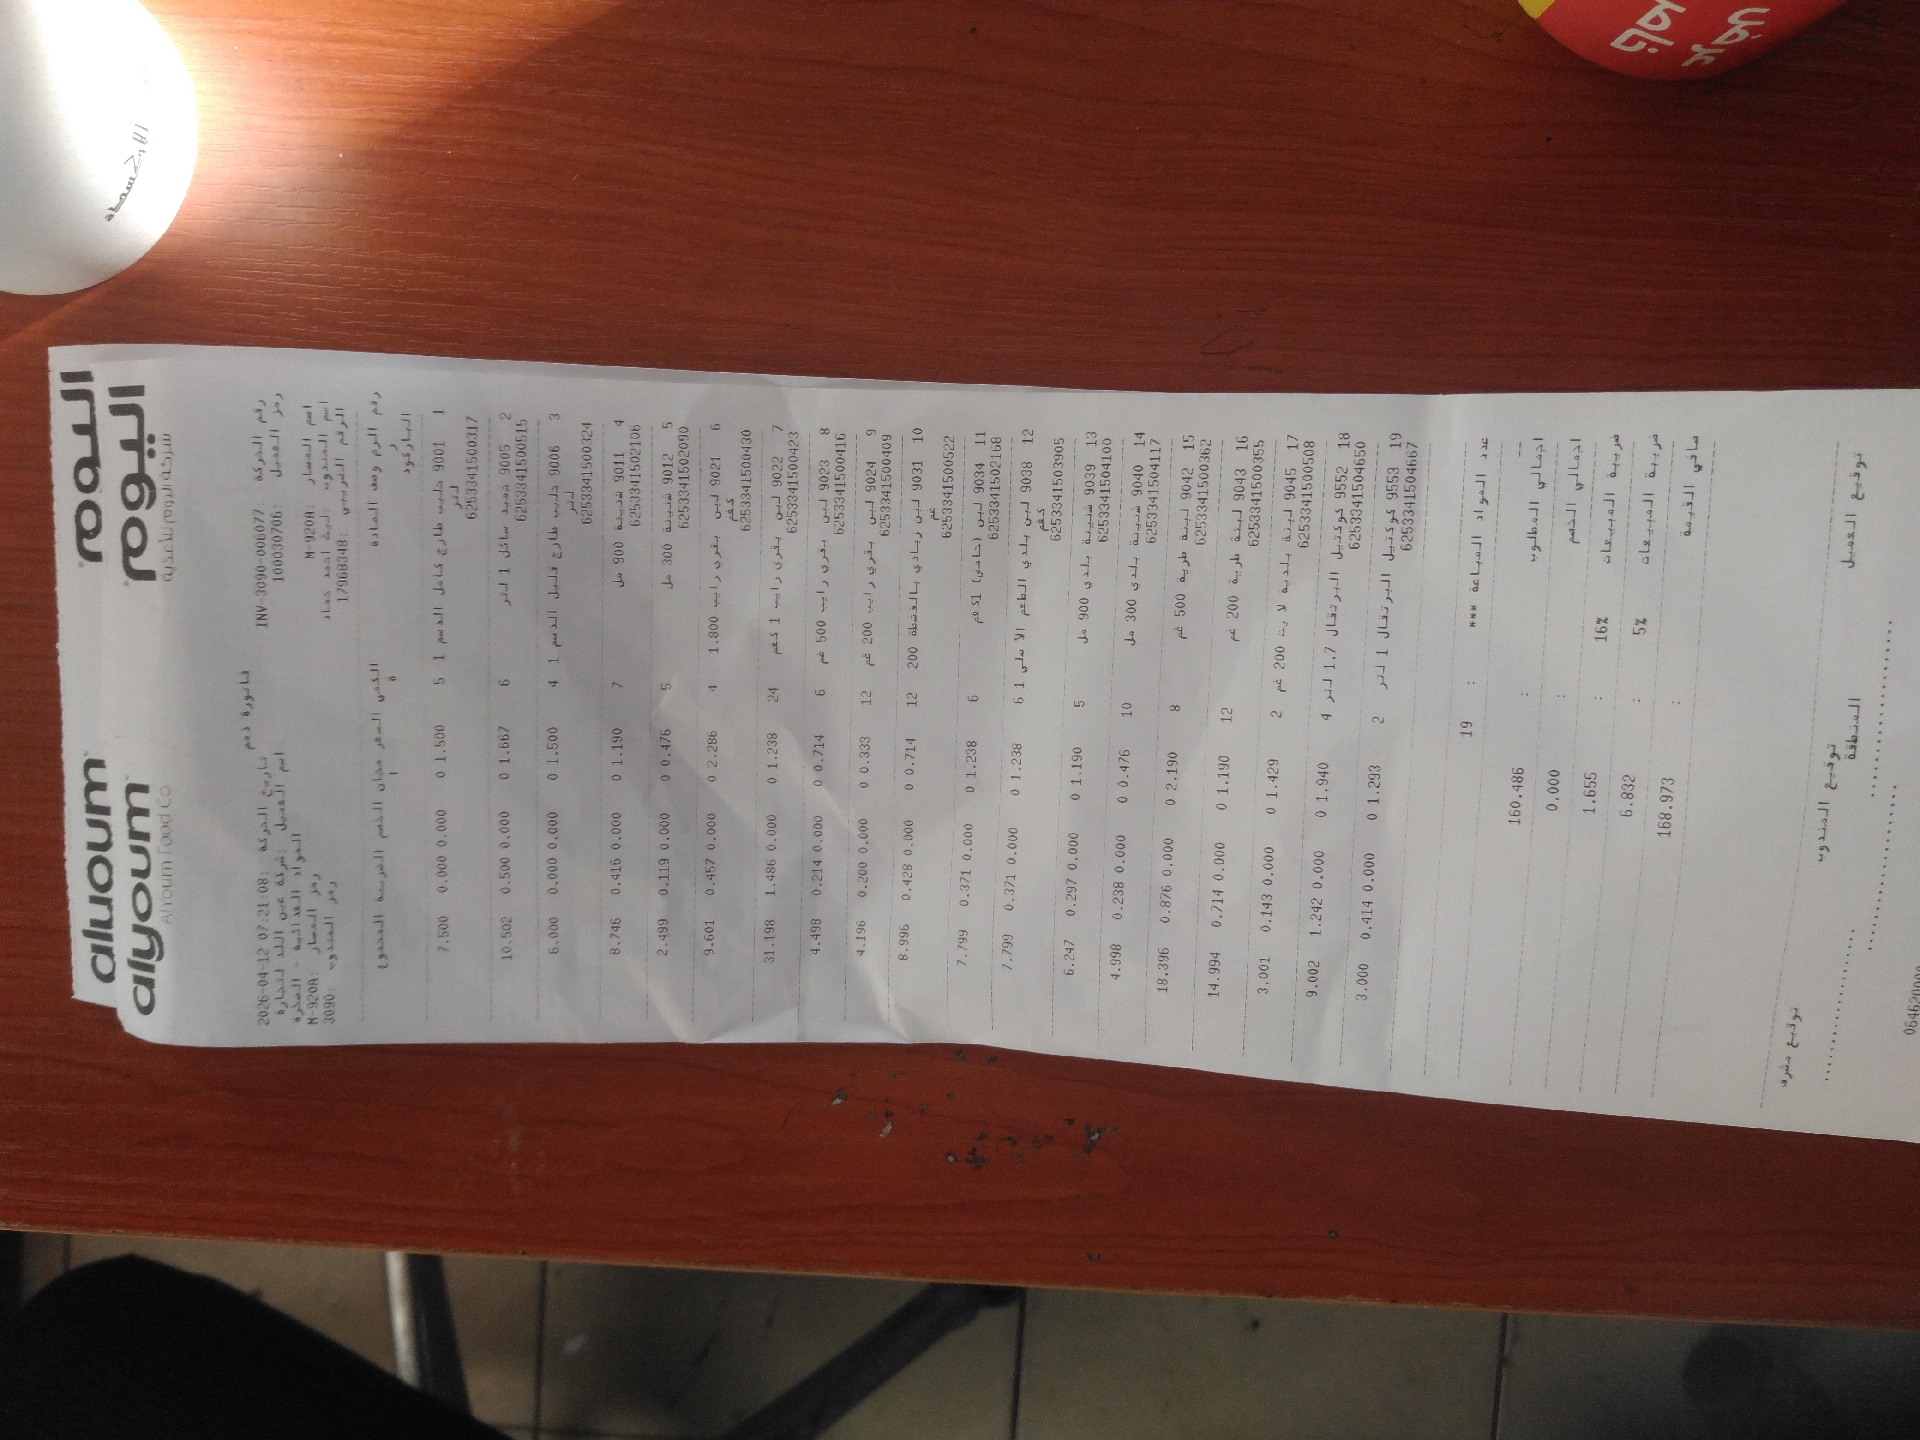 اليوم aluoum
اليوم alyoum
شركة اليوم للأغذية Alyoum Food Co
فاتورة ذمم
رقم الحركة: INV-3090-006077 تاريخ الحركة: 2026-04-12 07:21:08
رمز العميل: 100030706 اسم العميل: شركة عين اللد لتجارة
المواد الغذائية - المقرة
اسم المسار: M-920A رمز المسار: M-920A
اسم المندوب: ليث احمد حماد رمز المندوب: 3090
الرقم الضريبي: 17968348
رقم الرمز وصف المادة الكمية السعر مجان الخصم الضريبة المجموع
الباركود
1 9001 حليب طازج كامل الدسم 1 5 1.500 0 0.000 0.000 7.500
لتر
6253341500317
2 9005 جميد سائل 1 لتر 6 1.667 0 0.000 0.500 10.502
6253341500515
3 9006 حليب طازج قليل الدسم 1 4 1.500 0 0.000 0.000 6.000
لتر
6253341500324
4 9011 شنينة 900 مل 7 1.190 0 0.000 0.416 8.746
6253341502106
5 9012 شنينة 300 مل 5 0.476 0 0.000 0.119 2.499
6253341502090
6 9021 لبن بقري رايب 1.800 4 2.286 0 0.000 0.457 9.601
كغم
6253341500430
7 9022 لبن بقري رايب 1 كغم 24 1.238 0 0.000 1.486 31.198
6253341500423
8 9023 لبن بقري رايب 500 غم 6 0.714 0 0.000 0.214 4.498
6253341500416
9 9024 لبن بقري رايب 200 غم 12 0.333 0 0.000 0.200 4.196
6253341500409
10 9031 لبن زبادي بالقشطة 200 12 0.714 0 0.000 0.428 8.996
غم
6253341500522
11 9034 لبن (احاصي) 1كغم 6 1.238 0 0.000 0.371 7.799
6253341502168
12 9038 لبن بلدي الطعم الاصلي 1 6 1.238 0 0.000 0.371 7.799
كغم
6253341503905
13 9039 شنينة بلدي 900 مل 5 1.190 0 0.000 0.297 6.247
6253341504100
14 9040 شنينة بلدي 300 مل 10 0.476 0 0.000 0.238 4.998
6253341504117
15 9042 لبنة طرية 500 غم 8 2.190 0 0.000 0.876 18.396
6253341500362
16 9043 لبنة طرية 200 غم 12 1.190 0 0.000 0.714 14.994
6253341500355
17 9045 لبنة بلدية لايت 200 غم 2 1.429 0 0.000 0.143 3.001
6253341500508
18 9552 كوكتيل البرتقال 1.7 لتر 4 1.940 0 0.000 1.242 9.002
6253341504650
19 9553 كوكتيل البرتقال 1 لتر 2 1.293 0 0.000 0.414 3.000
6253341504667
عدد المواد المباعة *** : 19
اجمالي المطلوب : 160.486
اجمالي الخصم : 0.000
ضريبة المبيعات 16% : 1.655
ضريبة المبيعات 5% : 6.832
صافي القيمة : 168.973
توقيع العميل توقيع المندوب توقيع مشرف
المنطقة